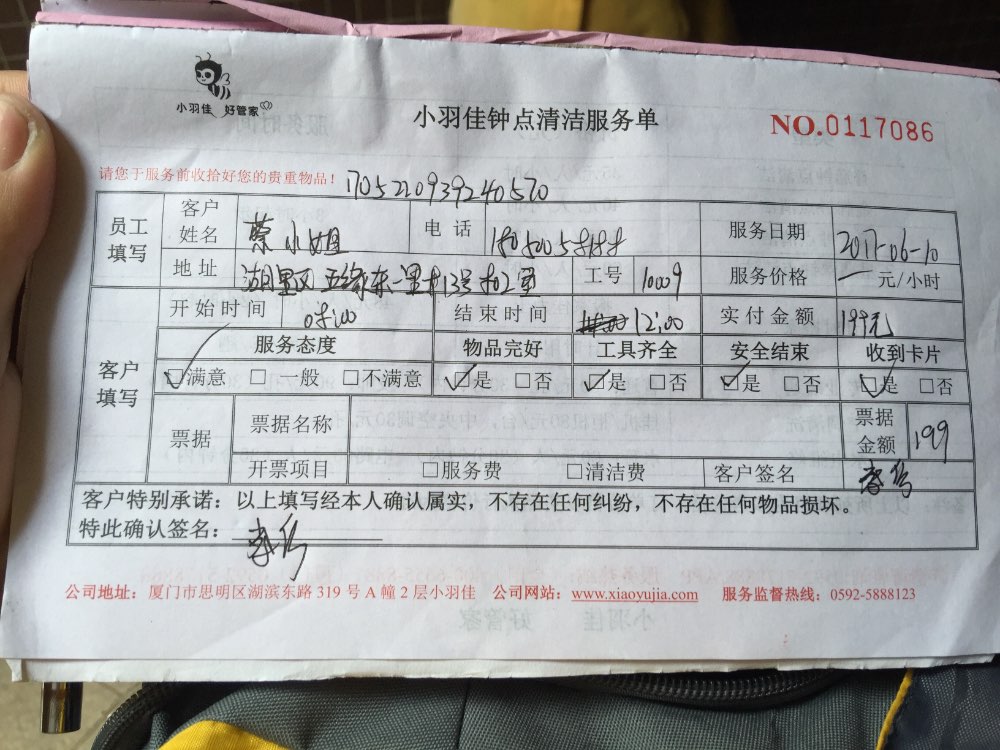 小羽佳 好管家
小羽佳钟点清洁服务单
NO.0117086
请您于服务前收拾好您的贵重物品！ 1705210939240570
员工填写 客户姓名 蔡小姐 电话 服务日期 2017-06-10
地址 湖里区 工号 10009 服务价格 一 元/小时
开始时间 结束时间 12:00 实付金额 199元
客户填写 服务态度 物品完好 工具齐全 安全结束 收到卡片
☑满意 □一般 □不满意 ☑是 □否 ☑是 □否 ☑是 □否 ☑是 □否
票据 票据名称 票据金额 199
开票项目 □服务费 □清洁费 客户签名
客户特别承诺：以上填写经本人确认属实，不存在任何纠纷，不存在任何物品损坏。
特此确认签名：
公司地址：厦门市思明区湖滨东路 319 号 A 幢 2 层小羽佳 公司网站：www.xiaoyujia.com 服务监督热线：0592-5888123